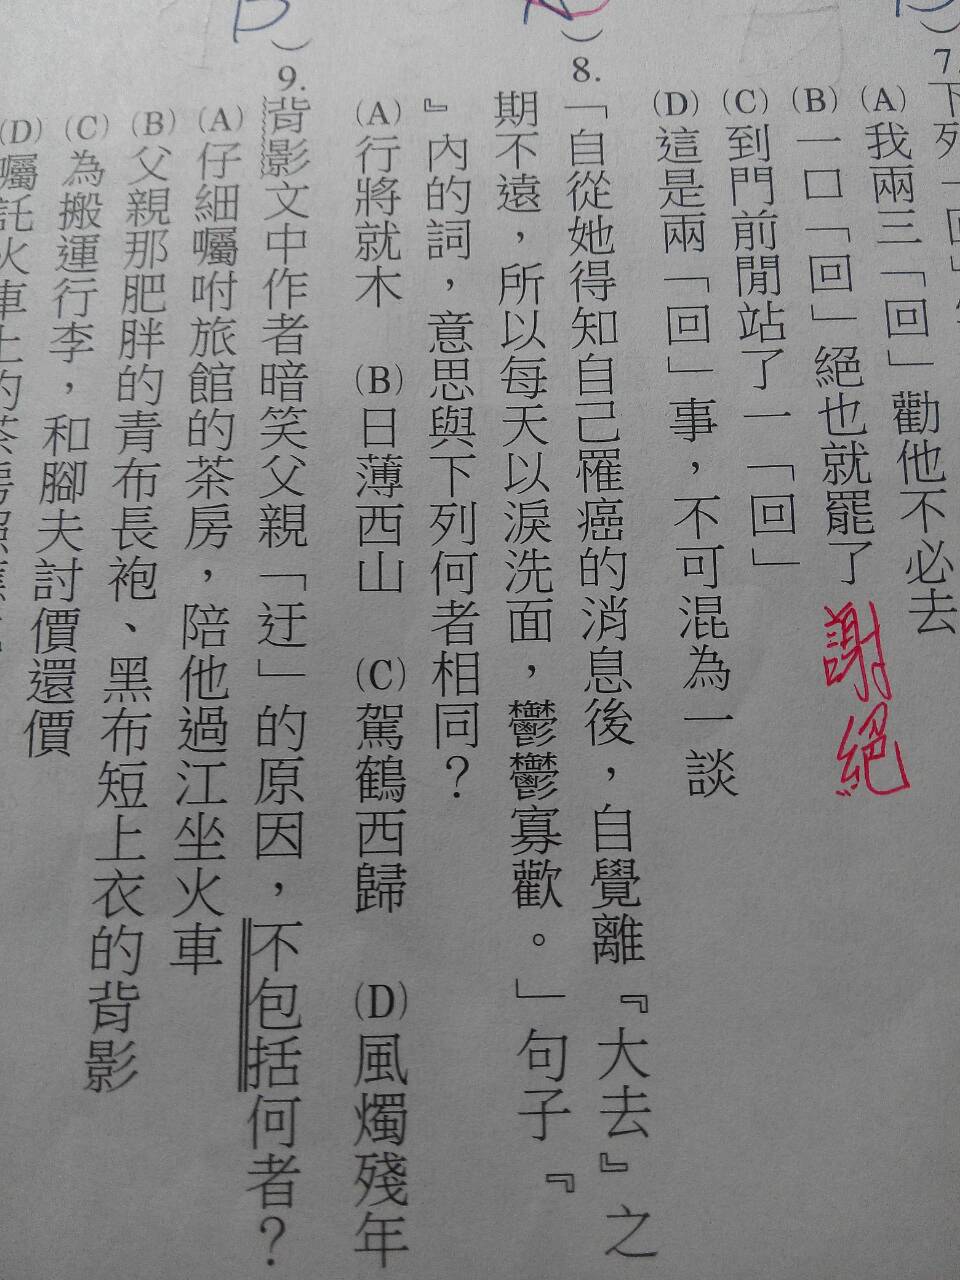 7.下列「回」
(A)我兩三「回」勸他不必去
(B)一口「回」絕也就罷了
謝絕
(C)到門前閒站了一「回」
(D)這是兩「回」事，不可混為一談
8.「自從她得知自己罹癌的消息後，自覺離『大去』之
期不遠，所以每天以淚洗面，鬱鬱寡歡。」句子『
』內的詞，意思與下列何者相同？
(A)行將就木　(B)日薄西山　(C)駕鶴西歸　(D)風燭殘年
B
9.背影文中作者暗笑父親「迂」的原因，不包括何者？
(A)仔細囑咐旅館的茶房，陪他過江坐火車
(B)父親那肥胖的青布長袍、黑布短上衣的背影
(C)為搬運行李，和腳夫討價還價
(D)囑託火車上的茶房照應